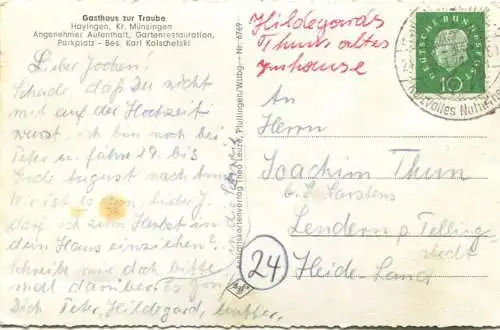 Gasthaus zur Traube
Hayingen, Kr. Münsingen
Angenehmer Aufenthalt, Gartenrestauration,
Parkplatz - Bes. Karl Kolschefski
Lieber Jochen!
Schade, daß Du nicht
mit auf der Hochzeit
warst. ich bin noch bei
Peter u. fahre 29. bis
Ende August nach
Wie ist es nun, lieber J.
darf ich zum Herbst in
dein Haus einziehen?
Schreib mir doch bitte
mal darüber. Es
Dich Peter, Hildegard, Mutter.
Ansichtskartenverlag Theo Leuze, Pfullingen/Württbg. - Nr. 6769
Hildegards
Thuns altes
zuhause
DEUTSCHE BUNDESPOST
10
An
Herrn
Joachim Thun
b. E. Carstens
Lendern p. Tellingstedt
24
Heide-Land